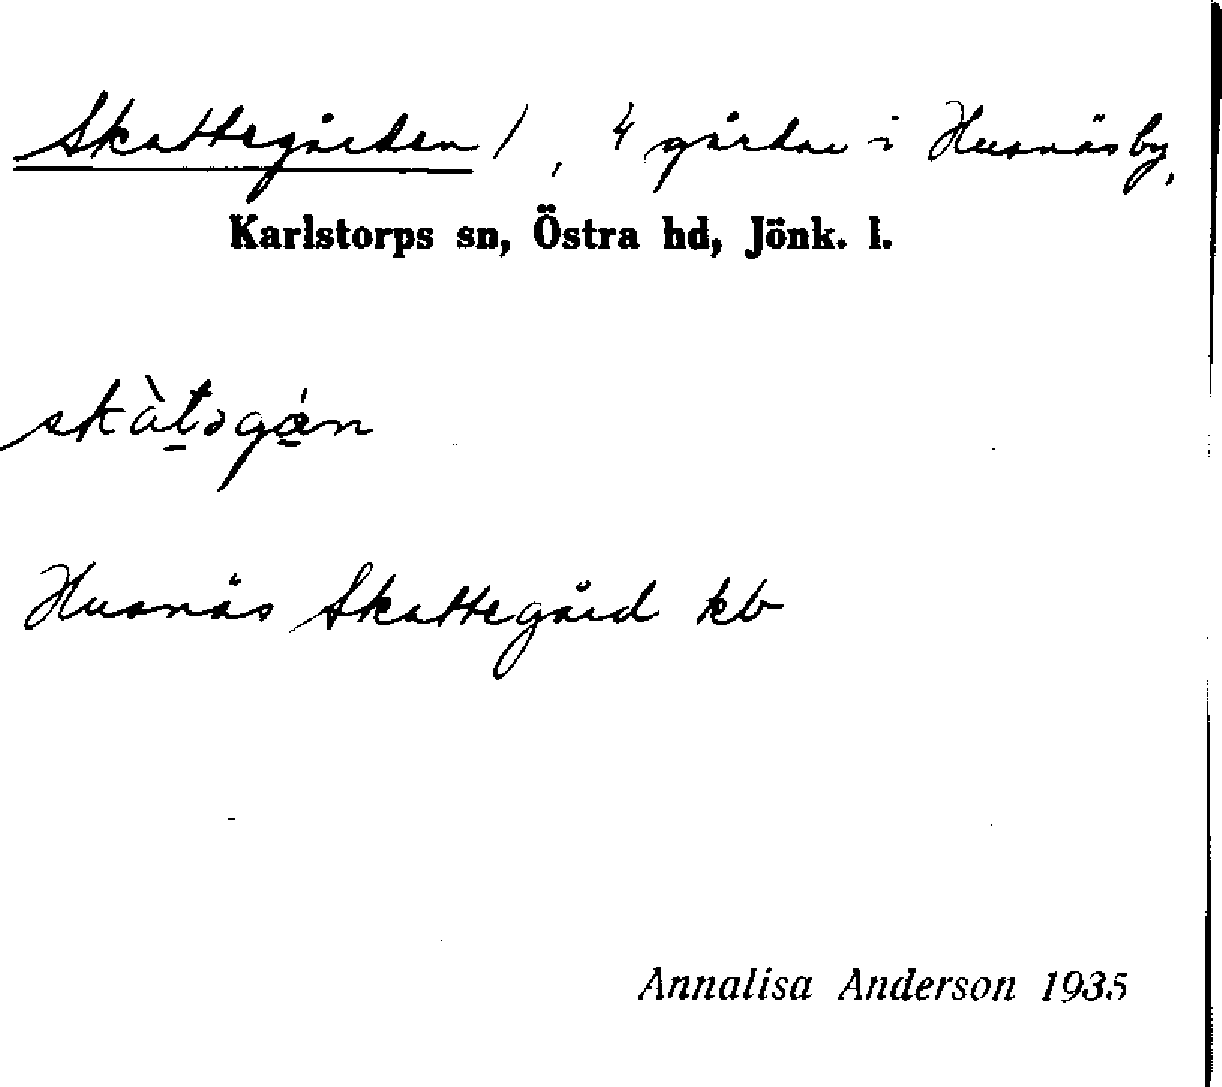 Skattegården /, 4 gårdar i Husnäsby,
Karlstorps sn, Östra hd, Jönk. l.
skàt̠əgá̠n
Husnäs Skattegård kb
Annalisa Anderson 1935